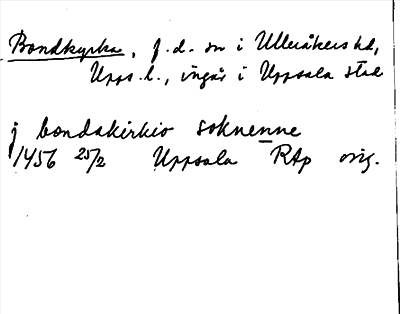 Bondkyrka, f.d. sn i Ulleråkers hd,
Upps. l., ingår i Uppsala stad
j bondakirkio soknenne
1456 25/2 Uppsala RAp orig.